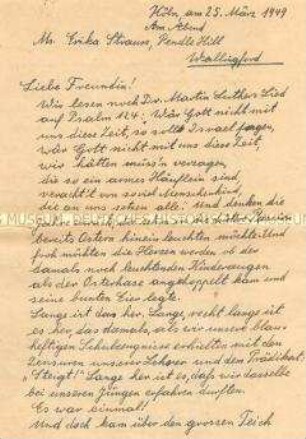 Köln, am 25. März 1949
Am Abend
Mr. Erika Strauss, Pendle Hill
Wallingford
Liebe Freundin!
Wir lesen noch Dr. Martin Luthers Lied
auf Psalm 124: Wär Gott nicht mit
uns diese Zeit, so sollt Israel sagen,
wär Gott nicht mit uns diese Zeit,
wir hätten müss'n verzagen,
die so ein armes Häuflein sind,
veracht't von soviel Menschenkind,
die an uns setzen alle! Und denken die
bereits Ostern hinein leuchten möchte. Und
froh möchten die Herzen werden ob der
damals noch leuchtenden Kinderaugen
als der Osterhase angehoppelt kam und
seine bunten Eier legte.
Lange ist das her. Lange, recht lange ist
es her das damals, als wir unsere blau-
heftigen Schulzeugnisse erhielten mit den
Zensuren unserer Lehrer und dem Prädikat:
"Steigt!" Lange her ist es, daß wir dasselbe
bei unseren Jüngen erfahren durften.
Es war einmal,
Und doch kam über den grossen Teich